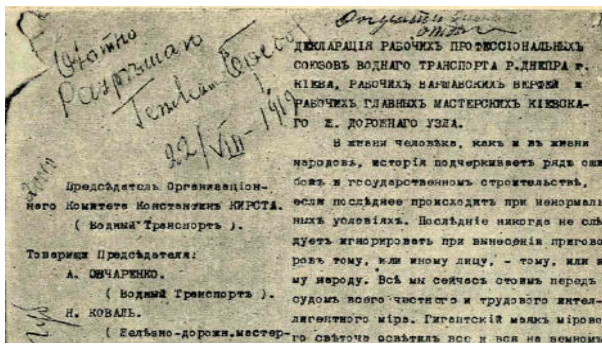 Охотно
Разрѣшаю
22/VIII-1919
Предсѣдатель Организаціон-
наго Комитета Константинъ КИРСТА.
( Водный Транспортъ ).
Товарищи Предсѣдателя:
А. ОВЧАРЕНКО.
( Водный Транспортъ ).
Н. КОВАЛЬ.
( Желѣзно-дорожн.мастер-
ДЕКЛАРАЦІЯ РАБОЧИХЪ ПРОФЕССІОНАЛЬНЫХЪ
СОЮЗОВЪ ВОДНАГО ТРАНСПОРТА Р.ДНЕПРА г.
КІЕВА, РАБОЧИХЪ ВАРШАВСКИХЪ ВЕРФЕЙ и
РАБОЧИХЪ ГЛАВНЫХЪ МАСТЕРСКИХЪ КІЕВСКА-
ГО Ж. ДОРОЖНАГО УЗЛА.
Въ жизни человѣка, какъ и въ жизни
народовъ, исторія подчеркиваетъ рядъ оши
бокъ в государственномъ строительствѣ,
если послѣднее происходитъ при ненормаль
ныхъ условіяхъ. Послѣдніе никогда не слѣ
дуетъ игнорировать при вынесеніи пригово
ровъ тому, или иному лицу, - тому, или и
му народу. Всѣ мы сейчасъ стоимъ передъ
судомъ всего честного и трудового интел-
лигентного міра. Гигантскій маякъ мірово
го свѣточа освѣтилъ все и вся на земномъ